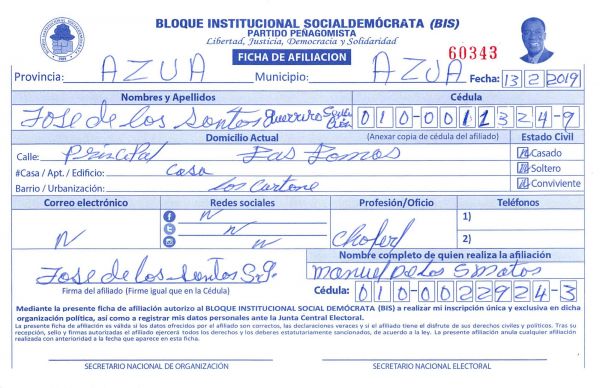 BLOQUE INSTITUCIONAL SOCIALDEMÓCRATA (BIS)
PARTIDO PEÑAGOMISTA
Libertad, Justicia, Democracia y Solidaridad
FICHA DE AFILIACION
60343
Provincia: AZUA Municipio: AZUA Fecha: 13 2 2019
Nombres y Apellidos Cédula
Jose de los Santos 010-0011324-9
Domicilio Actual (Anexar copia de cédula del afiliado) Estado Civil
Calle: Principal Las Lomas Casado
#Casa / Apt. / Edificio: Casa Soltero
Barrio / Urbanización: Los Conviviente
Correo electrónico Redes sociales Profesión/Oficio Teléfonos
N N N N Chofer 1)
2)
Nombre completo de quien realiza la afiliación
Jose de los Santos Manuel De los S Matos
Firma del afiliado (Firme igual que en la Cédula) Cédula: 010-0022924-3
Mediante la presente ficha de afiliación autorizo al BLOQUE INSTITUCIONAL SOCIAL DEMÓCRATA (BIS) a realizar mi inscripción única y exclusiva en dicha
organización política, así como a registrar mis datos personales ante la Junta Central Electoral.
La presente ficha de afiliación es válida si los datos ofrecidos por el afiliado son correctos, las declaraciones veraces y si el afiliado tiene el disfrute de sus derechos civiles y políticos. Tras su
recepción, sello y firmas autorizadas el afiliado ejercerá todos los derechos y los deberes estatutariamente sancionados, de acuerdo a la ley. La presente afiliación anula cualquier afiliación
realizada con anterioridad a la fecha que aparece en esta ficha.
SECRETARIO NACIONAL DE ORGANIZACIÓN SECRETARIO NACIONAL ELECTORAL